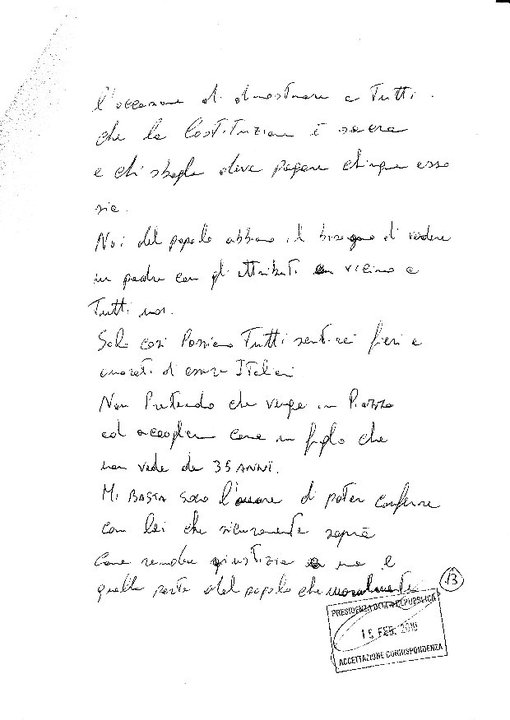 l'occasione di dimostrare a Tutti.
che la Costituzione è sacra
e chi sbaglia deve pagare chiunque esso
sia.
Noi del popolo abbiamo il bisogno di vedere
un padre con gli attributi vicino a
Tutti noi.
Solo così Possiamo Tutti sentirci fieri e
onorati di essere Italiani
Non Pretendo che venga in Piazza
ad accogliermi come un figlio che
non vede da 35 ANNI.
Mi BASTA solo l'onore di poter conferire
con lei che sicuramente saprà
Come rendere giustizia a me e
quella parte del popolo che moralmente
13
PRESIDENZA DELLA REPUBBLICA
15 FEB. 2010
ACCETTAZIONE CORRISPONDENZA